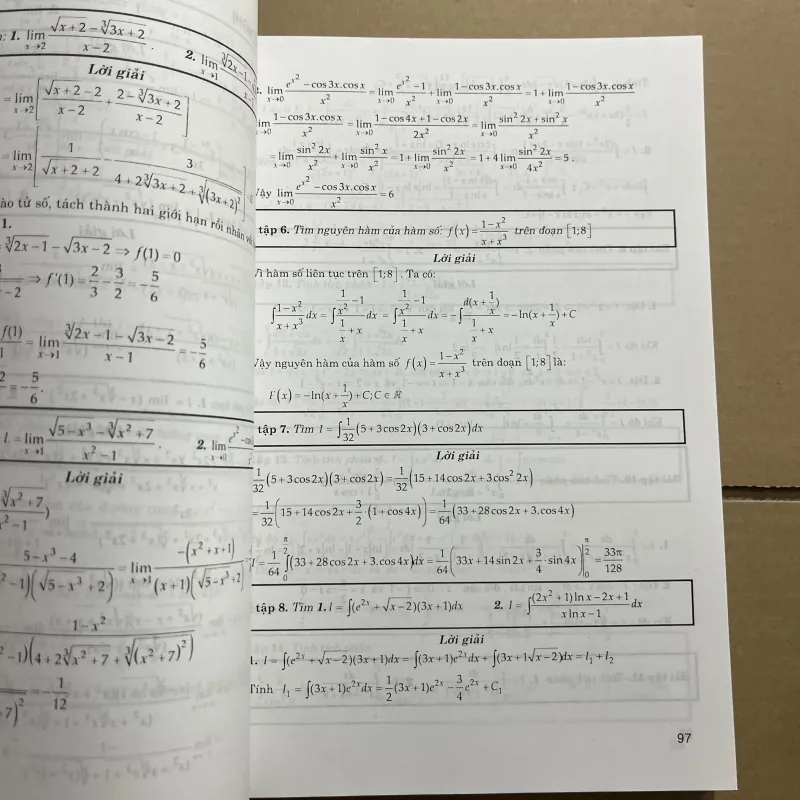 1. lim x→2 (√x+2 − ∛3x+2)/(x−2).
2. lim x→1
Lời giải
=lim x→2 [(√x+2 −2)/(x−2) + (2−∛3x+2)/(x−2)]
=lim x→2 [1/(√x+2 +2) − 3/(4+2∛3x+2 + ∛(3x+2)²)]
ào tử số, tách thành hai giới hạn rồi nhân
1.
=∛2x−1 − √3x−2 ⇒ f(1)=0
⇒ f'(1)=2/3 − 3/2 = −5/6
f(1)/1 = lim x→1 (∛2x−1 − √3x−2)/(x−1) = −5/6
= −5/6.
L=lim x→1 (√5−x³ − ∛x²+7)/(x²−1).
2. lim x→0
Lời giải
∛x²+7)
x²−1
(5−x³−4)/(²−1)(√5−x³+2) = lim x→1 −(x²+x+1)/(x+1)(√5−x³+2)
(1−x²)/(²−1)(4+2∛x²+7+∛(x²+7)²)
= −1/12
2. lim x→0 (e^x² −cos3x.cosx)/x² = lim x→0 (e^x² −1)/x² + lim x→0 (1−cos3x.cosx)/x² = 1+lim x→0 (1−cos3x.cosx)/x²
lim x→0 (1−cos3x.cosx)/x² = lim x→0 (1−cos4x+1−cos2x)/2x² = lim x→0 (sin²2x+sin²x)/x²
=lim x→0 sin²2x/x² + lim x→0 sin²x/x² = 1+lim x→0 sin²2x/x² = 1+4lim x→0 sin²2x/4x² = 5.
Vậy lim x→0 (e^x² −cos3x.cosx)/x² = 6
tập 6. Tìm nguyên hàm của hàm số: f(x)=(1−x²)/(x+x³) trên đoạn [1;8]
Lời giải
Vì hàm số liên tục trên [1;8]. Ta có:
∫(1−x²)/(x+x³)dx = ∫(1/x² −1)/(1/x +x)dx = ∫(1/x² −1)/(1/x +x)dx = −∫d(x+1/x)/(1/x +x) = −ln(x+1/x)+C
Vậy nguyên hàm của hàm số f(x)=(1−x²)/(x+x³) trên đoạn [1;8] là:
F(x)=−ln(x+1/x)+C;C∈ℝ
tập 7. Tìm I=∫1/32(5+3cos2x)(3+cos2x)dx
Lời giải
1/32(5+3cos2x)(3+cos2x)=1/32(15+14cos2x+3cos²2x)
=1/32(15+14cos2x+3/2·(1+cos4x))=1/64(33+28cos2x+3.cos4x)
I=1/64 ∫₀^(π/2)(33+28cos2x+3.cos4x)dx=1/64(33x+14sin2x+3/4·sin4x)|₀^(π/2)=33π/128
tập 8. Tìm 1. I=∫(e²ˣ+√x−2)(3x+1)dx 2. I=∫((2x²+1)lnx−2x+1)/(xlnx−1)dx
Lời giải
1. I=∫(e²ˣ+√x−2)(3x+1)dx=∫(3x+1)e²ˣdx+∫(3x+1√x−2)dx=I₁+I₂
Tính I₁=∫(3x+1)e²ˣdx=1/2(3x+1)e²ˣ−3/4e²ˣ+C₁
97